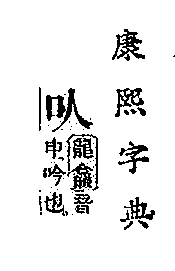 康熙字典
叺
龍龕音
申吟也。